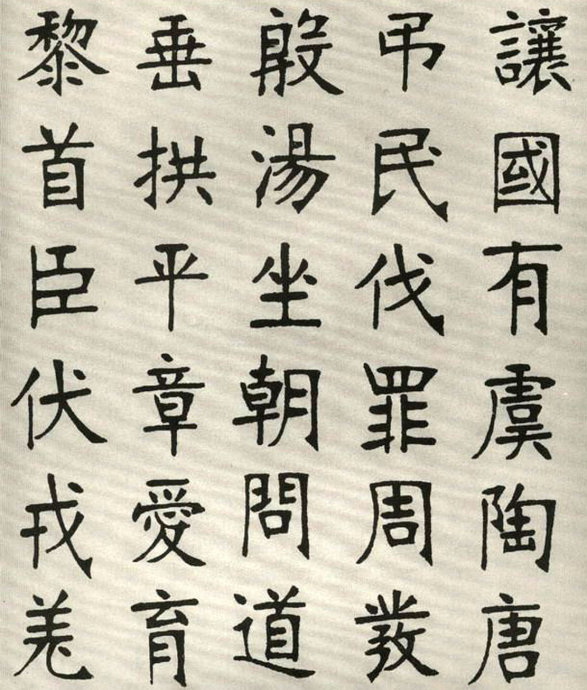 讓國有虞陶唐
弔民伐罪周發
殷湯坐朝問道
垂拱平章愛育
黎首臣伏戎羌